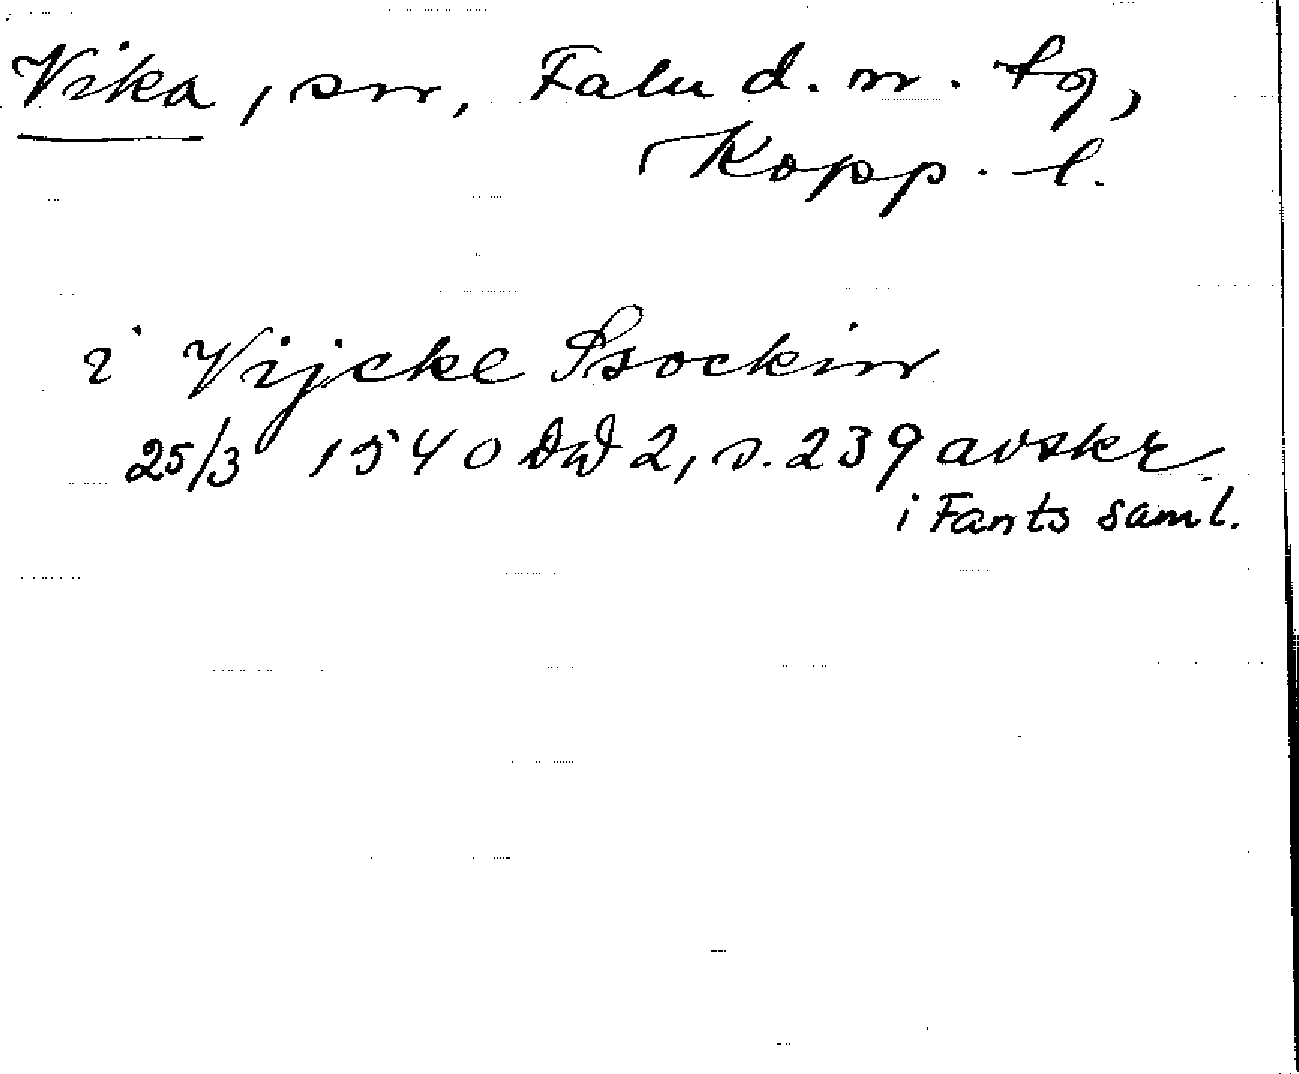 Vika, sn, Falu d. n. tg,
Kopp. l.
i Vijcke Ssockin
25/3 1540 DD 2, s. 239 avskr.
i Fants saml.